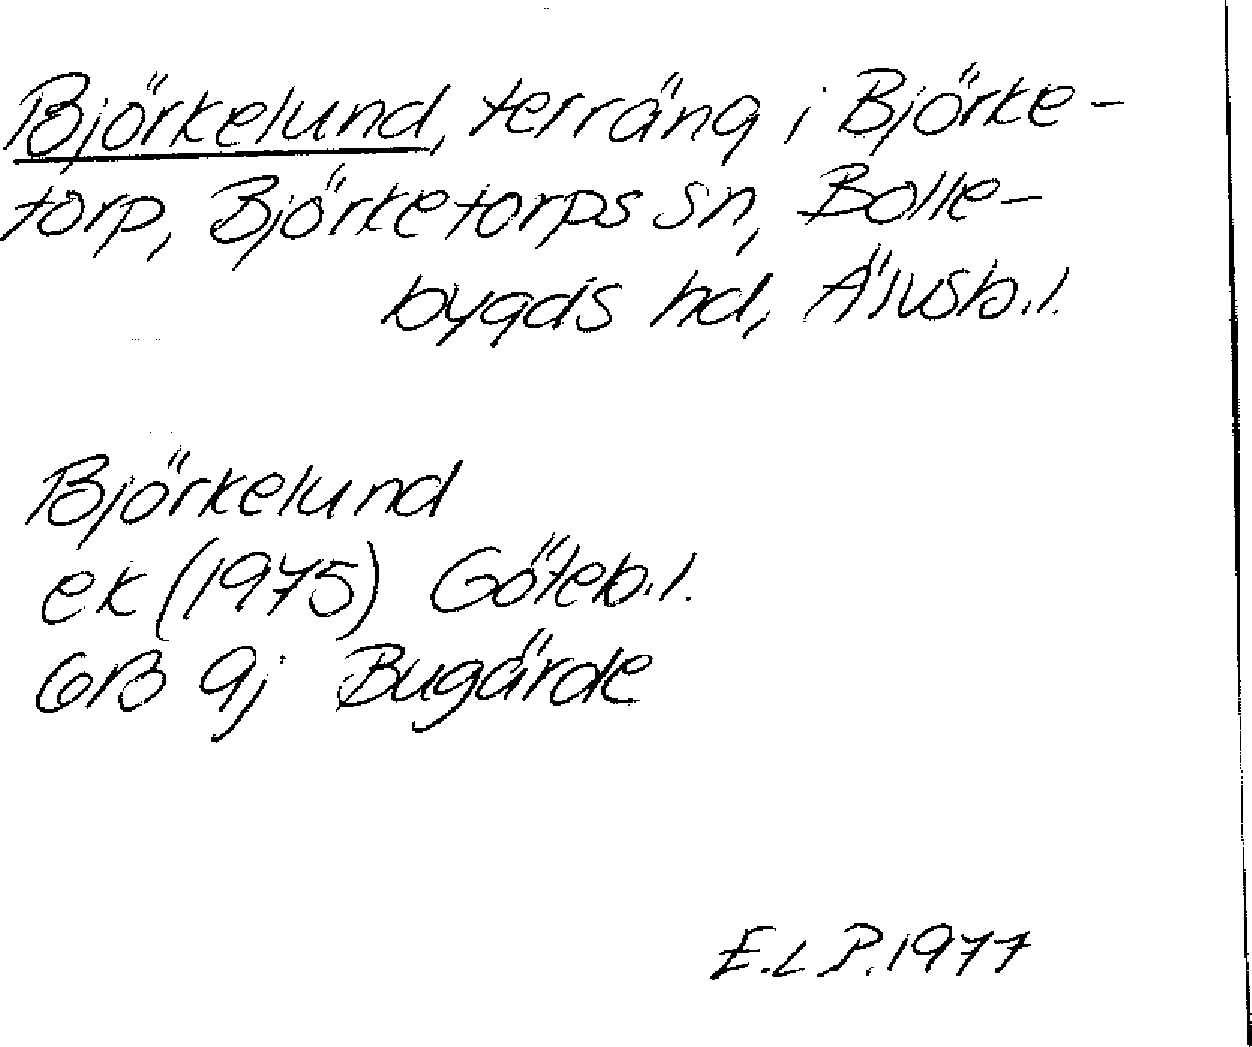 Björkelund, terräng i Björke-
torp, Björketorps sn, Bolle-
bygds hd, Älvsb.l.
Björkelund
ek (1975) Göteb.l.
6B 9j Bugärde
E.L P.1977